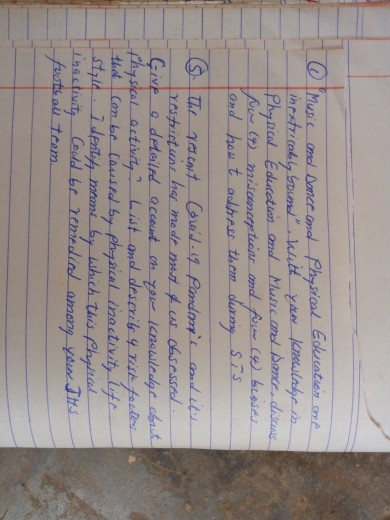 ① "Music and Dance and Physical Education are
inextricably bound". With your knowledge in
Physical Education and Music and Dance, discuss
four (4) misconceptions and four (4) biases
and how to address them during STS
⑤ The resent Covid-19 Pandemic and its
restrictions has made most of us obsessed.
Give a detailed account on your knowledge about
Physical activity? List and describe 4 risk factors
that can be caused by physical inactivity life
style. Identify means by which this Physical
inactivity could be remedied among your JHS
football team